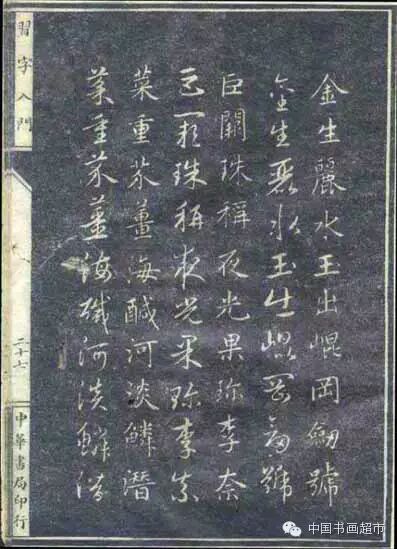 金生麗水玉出崐岡劒號
金生麗水玉出崐岡劒號
巨闕珠稱夜光果珍李奈
巨闕珠稱夜光果珍李奈
菜重芥薑海鹹河淡鱗潛
菜重芥薑海鹹河淡鱗潛
習字入門
二十七
中華書局印行
中国书画超市